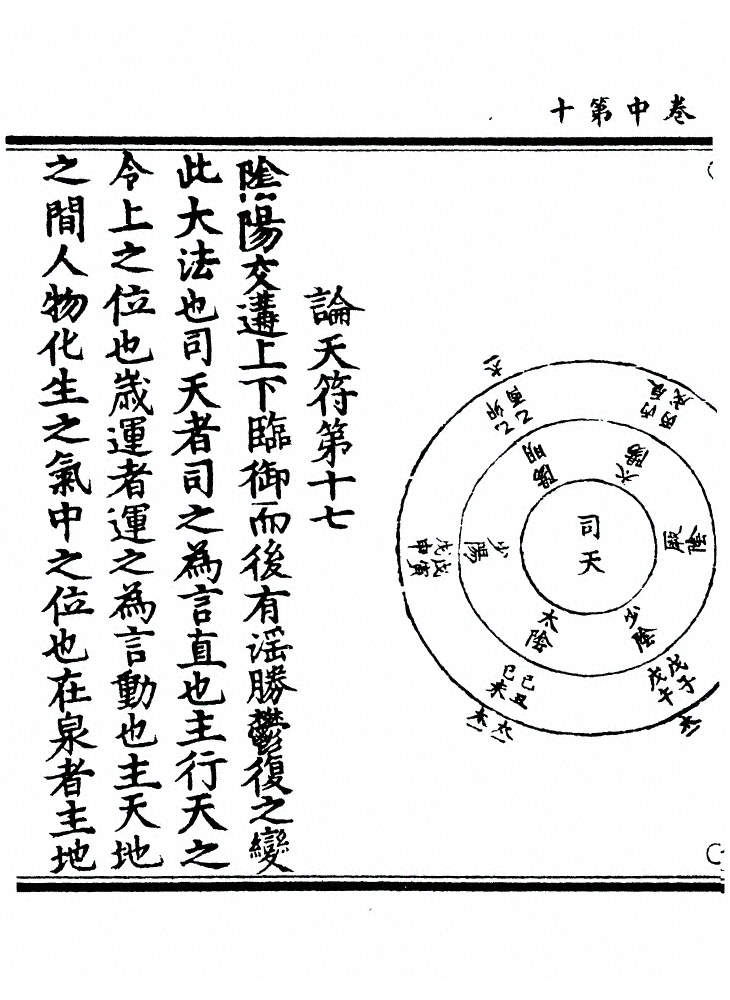 卷中第十
司天
厥陰
少陰
太陰
少陽
陽明
太陽
戊子
戊午
己丑
己未
戊寅
戊申
乙酉
乙卯
丙辰
丙戌
論天符第十七
陰陽交遘上下臨御而後有滛勝鬱復之變
此大法也司天者司之為言直也主行天之
令上之位也歲運者運之為言動也主天地
之間人物化生之氣中之位也在泉者主地